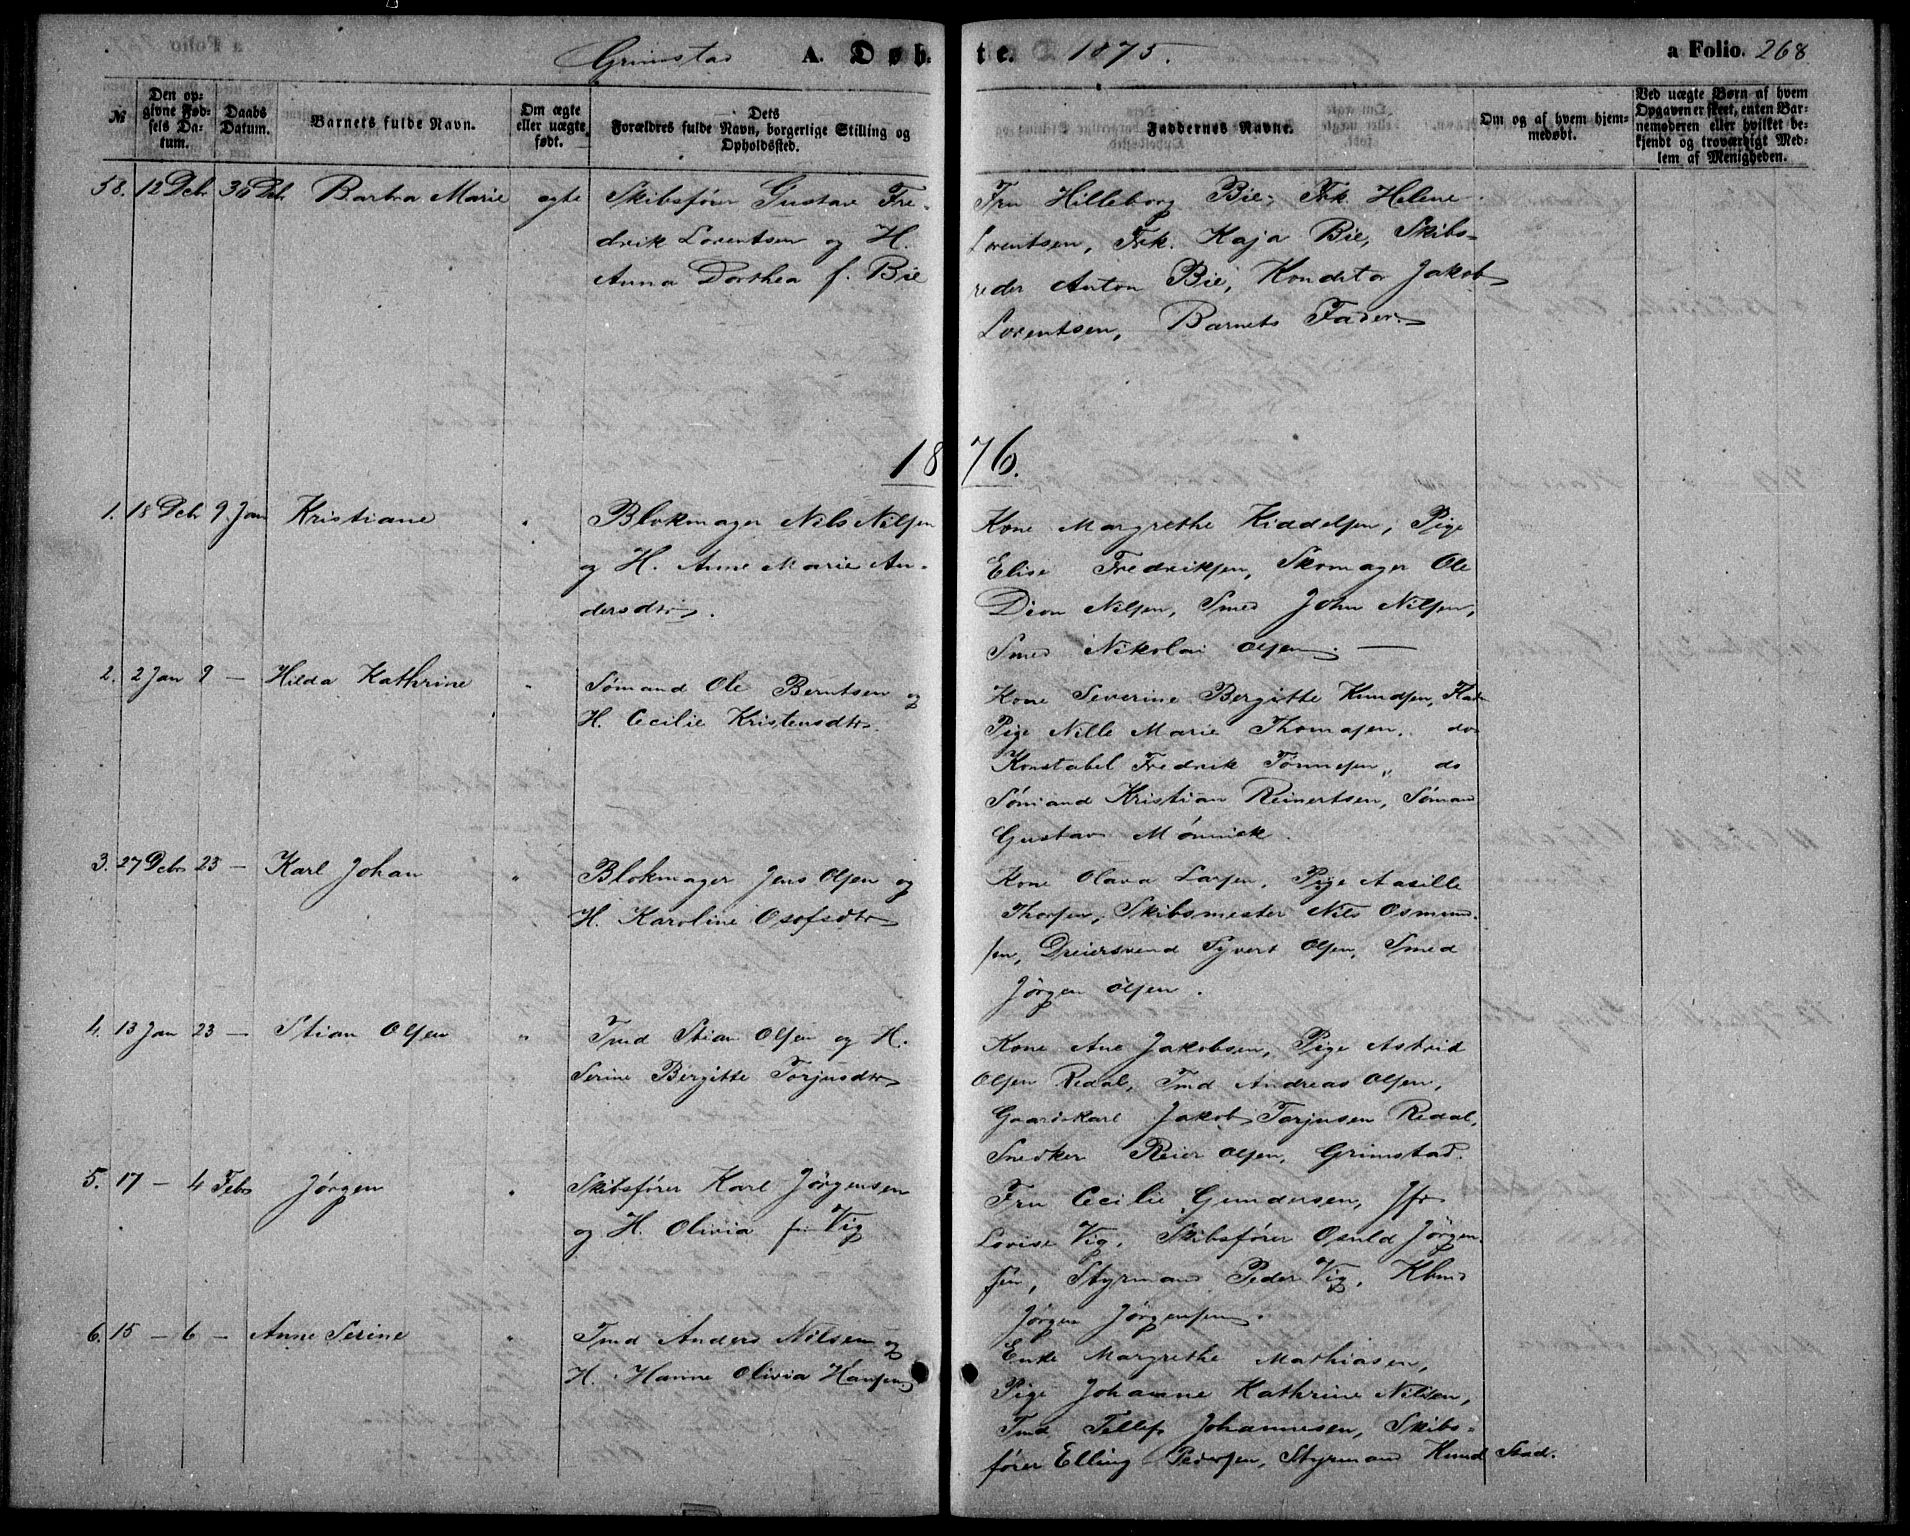 Grimstad A. Døbte. 1875. a Folio. 268
№
Den opgivne Fødsels Datum.
Daabs Datum.
Barnets fulde Navn.
Om ægte eller uægte født.
Dets Forældres fulde Navn, borgerlige Stilling og Opholdssted.
Faddernes Navne.
Om og af hvem hjemmedøbt.
Ved uægte Børn af hvem Opgaven er skeet, enten Barnemoderen eller hvilket bekjendt og troværdigt Medlem af Menigheden.
58. 12 Dcbr 30 Dcbr Barbra Marie ægte Skibsfører Gustav Fre-
drik Lorentsen og H.
Anna Dorthea f. Bie
Fru Hilleborg Bie, Frk. Helene
Lorentsen, Frk. Kaja Bie, Skibs-
reder Anton Bie, Konditor Jakob
Lorentsen, Barnets Fader.
1876.
1. 18 Dcbr 9. Jan Kristiane " Blokmager Nils Nilsen
og H. Anne Marie An-
dersdtr.
Kone Margrethe Kiddelsen, Pige
Elise Fredriksen, Skomager Ole
Dion Nilsen, Smed John Nilsen,
Smed Nikolai Olsen. —
2. 2 Jan 9 — Hilda Kathrine " Sømand Ole Berntsen og
H. Cecilie Kristensdtr.
Kone Severine Bergitte Knudsen,
Pige Nille Marie Thomasen, do
Konstabel Fredrik Tønnesen, do
Sømand Kristian Reinertsen, Søman
Gustav Mønnick.
3. 27 Dcbr 23 — Karl Johan " Blokmager Jens Olsen og
H. Karoline Osofsdtr
Kone Olava Larsen, Pige Aasille
Thorsen, Skibsmester Nils Osmund-
sen, Dreiersvend Syvert Olsen, Smed
Jørgen Olsen.
4. 13 Jan 23 — Stian Olsen " Tmd Stian Olsen og H.
Serine Bergitte Torjusdtr
Kone Ane Jakobsen, Pige Astrid
Olsen Redal, Tmd Andreas Olsen,
Gaardskarl Jakob Torjusen Redal,
Snedker Reier Olsen, Grimstad.
5. 17 — 4 Febr Jørgen " Skibsfører Karl Jørgensen
og H. Olivia f. Vig
Fru Cecilie Gundersen, Jfr
Lovise Vig, Skibsfører Osuld Jørgen-
sen, Styrmand Peder Vig, Kbmd
Jørgen Jørgensen.
6. 15 — 6 — Anne Serine " Tmd Anders Nilsen og
H. Hanne Olivia Hansen
Enke Margrethe Mathiasen,
Pige Johanne Kathrine Nilsen,
Tmd Tellef Johannesen, Skibs-
fører Elling Pedersen, Styrmand Knud Stad.